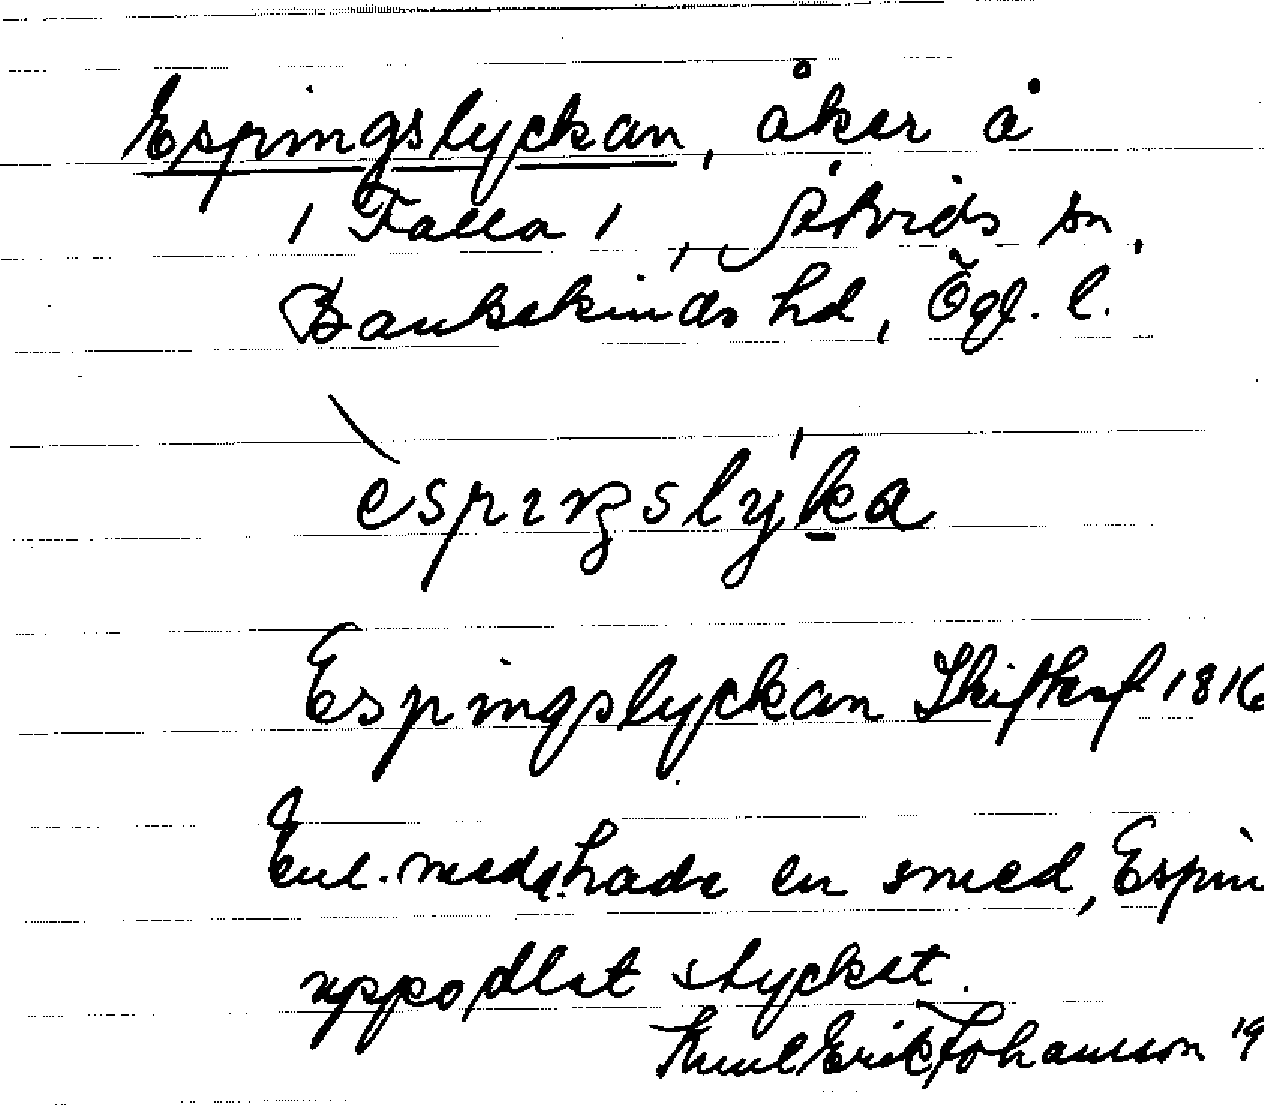 Espingslyckan, åker å
/ Falla /, Åtvids sn,
Bankekinds hd, Ögl. l.
espıŋslýka
Espingslyckan Skifteskrift 1816
Enl. medd. hade en smed, Espin
uppodlat stycket.
Knut Erik Johansson '19